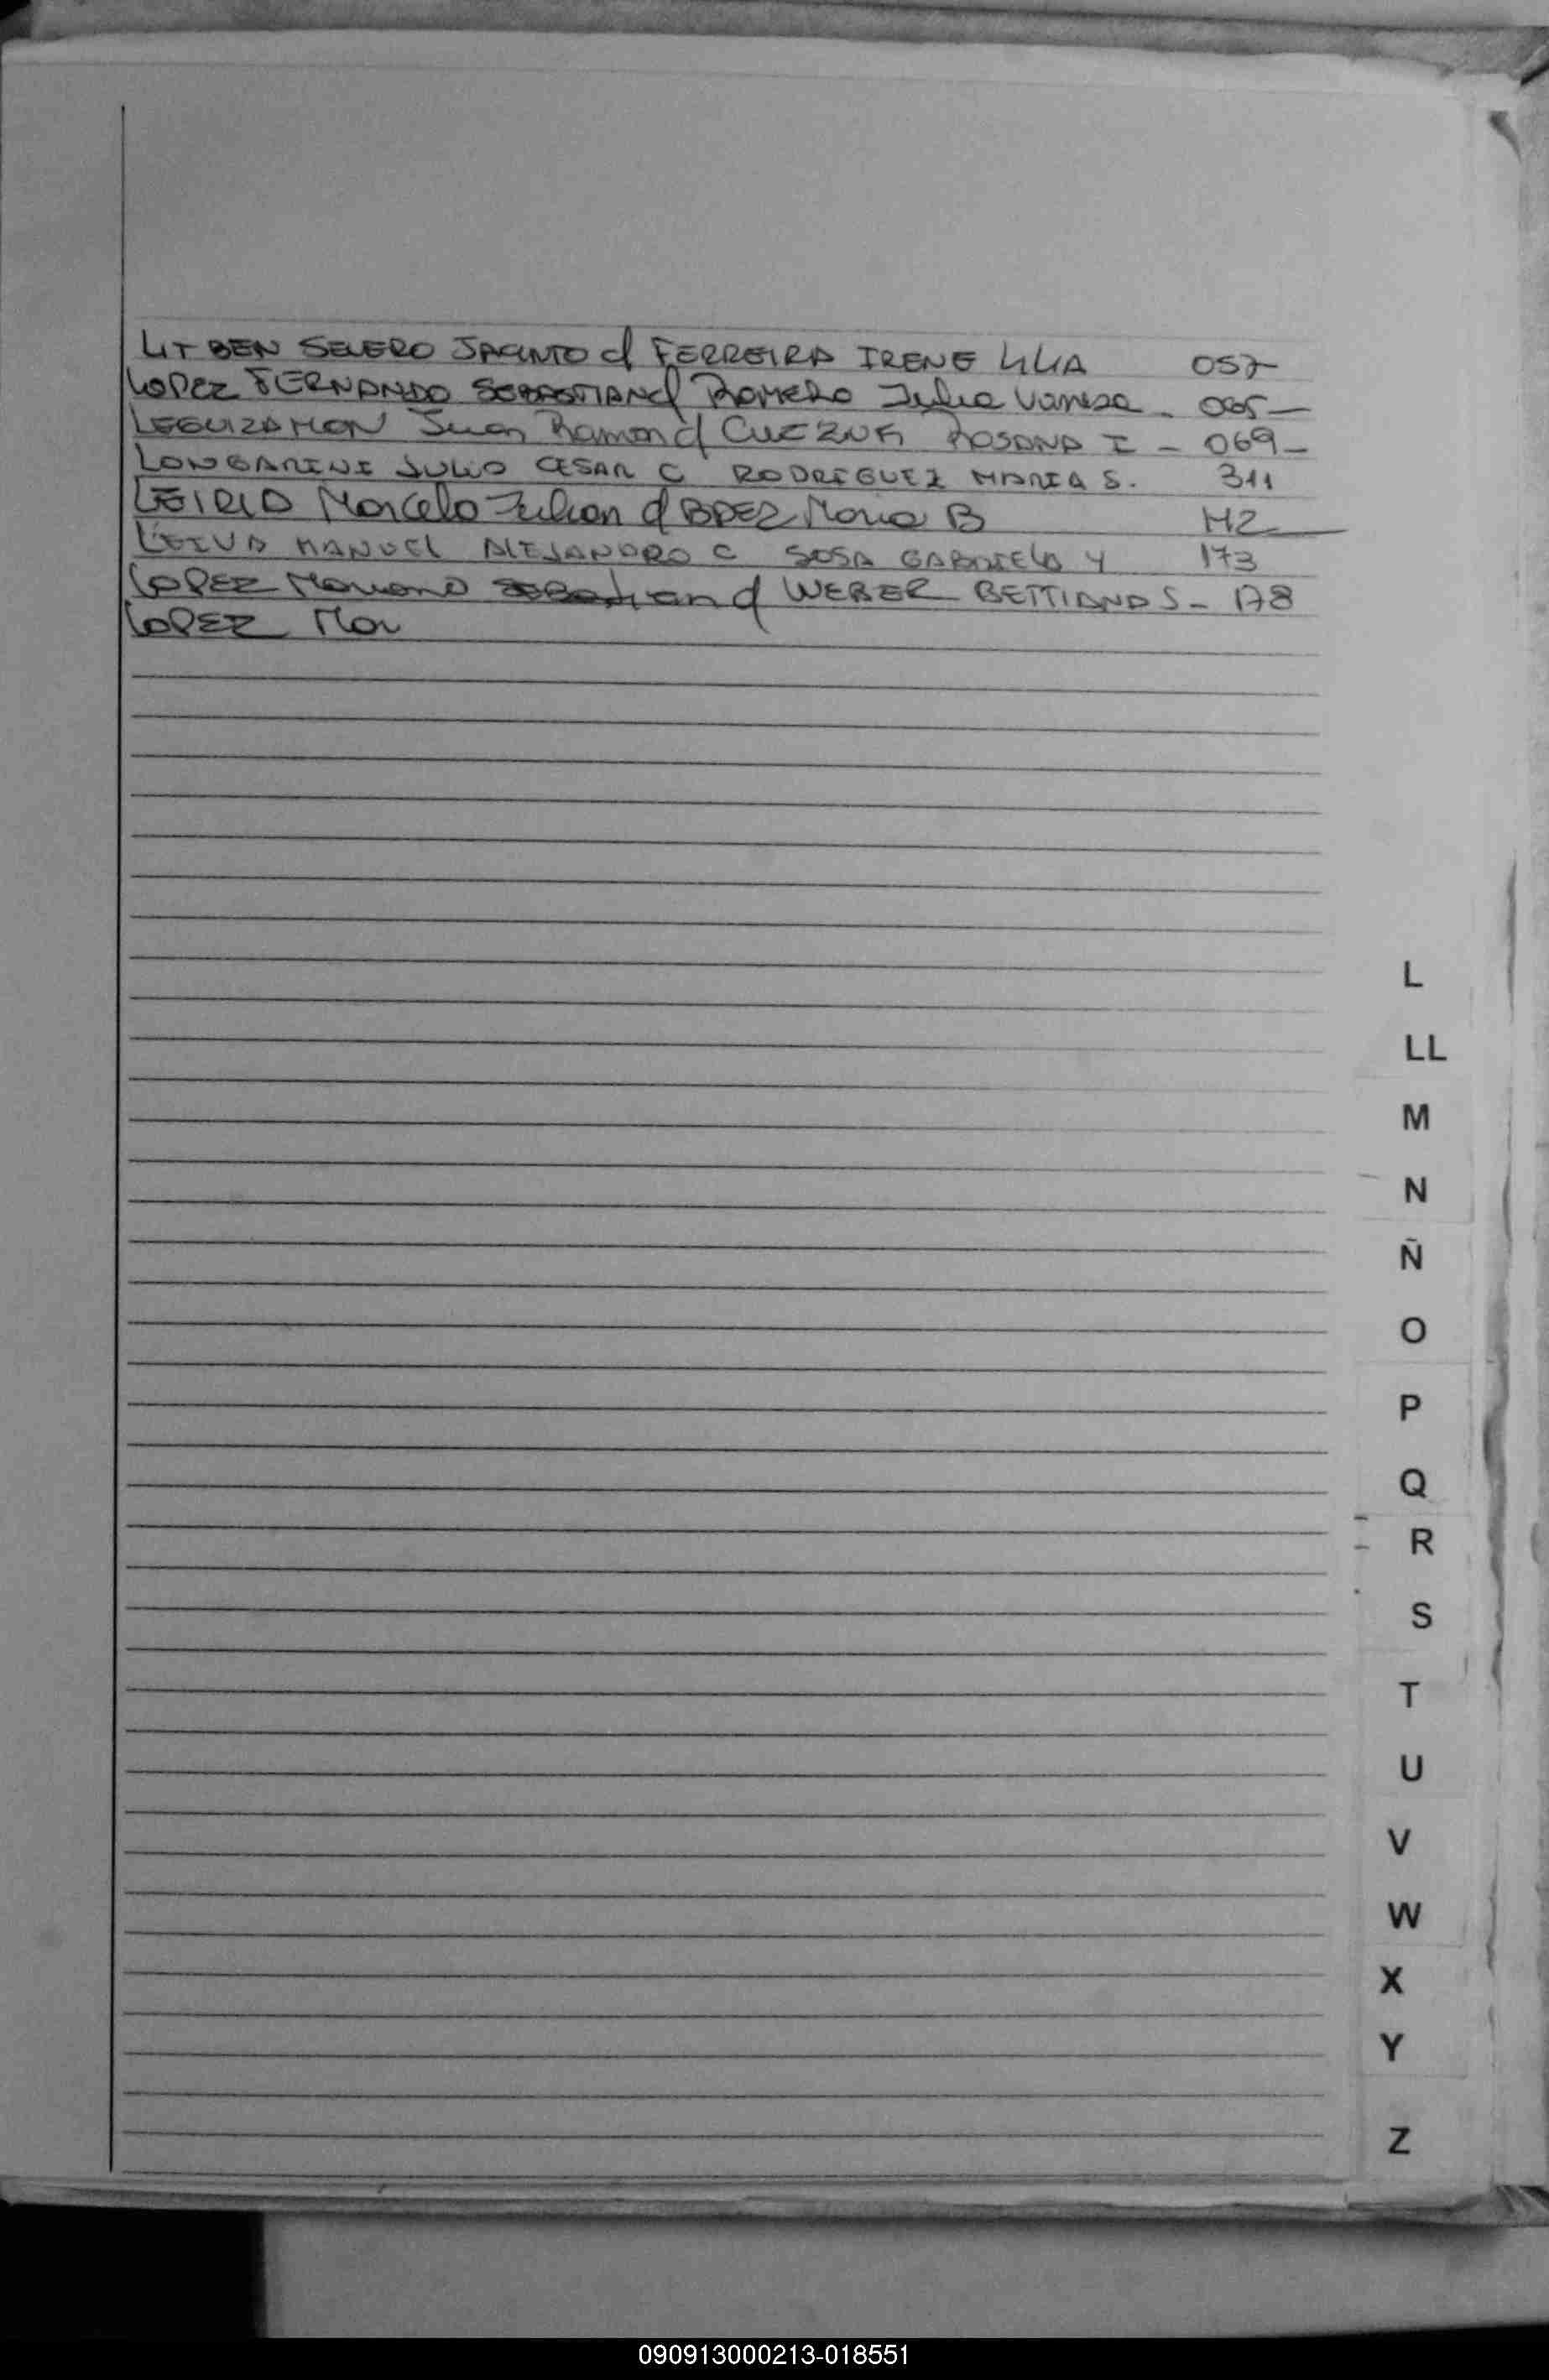 LITBEN SEVERO JACINTO c/ FERREIRA IRENE LILIA 057
LOPEZ FERNANDO SEBASTIAN c/ ROMERO Julia Vanesa - 065-
LEGUIZAMON Juan Ramon c/ ROSANA I - 069-
LONGARINI JULIO CESAR C RODRIGUEZ MARIA S. 311
Marcelo Julian c/ Maria B
LEIVA MANUEL ALEJANDRO C SOSA GABRIELA Y 173
LOPEZ Mariano Sebastian c/ WEBER BETTIANA S - 178
LOPEZ Mar
L
LL
M
N
Ñ
O
P
Q
R
S
T
U
V
W
X
Y
Z
090913000213-018551